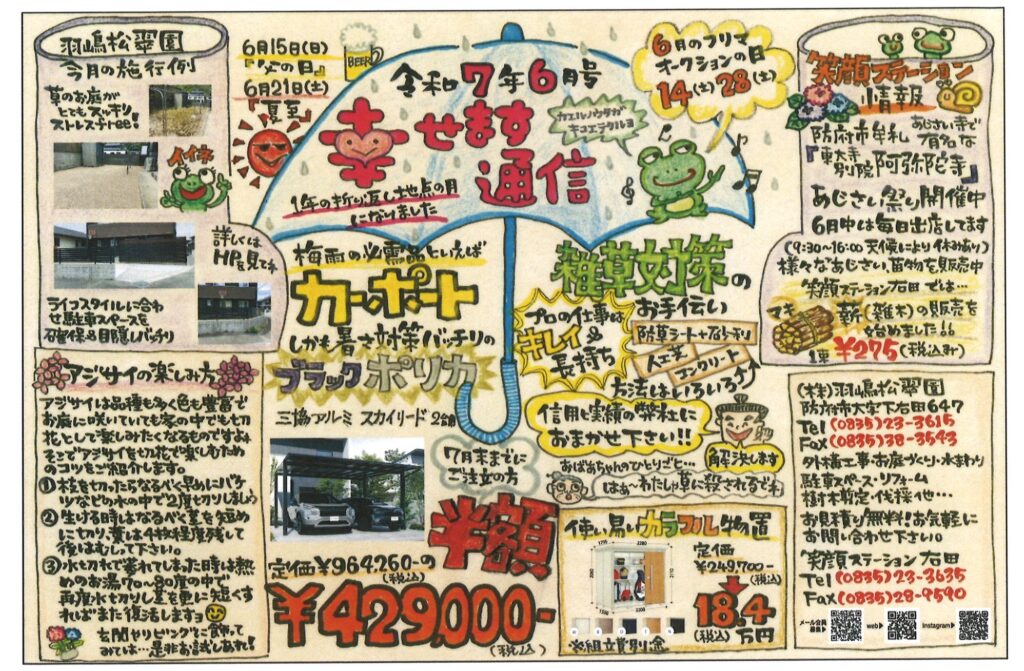 羽嶋松翠園
今月の施行例
草のお庭が
とてもスッキリ
ストレスfree!
イイネ
詳しくは
HPを見てネ
ライフスタイルに合わ
せ駐車スペースを
確保&目隠しバッチリ
6月15日(日)
『父の日』
6月21日(土)
『夏至』
BEER
令和7年6月号
幸せます
通信
1年の折り返し地点の月
になりました
カエルノウタガ
キコエテクルヨ
6月のフリマ
オークションの日
14(土)28(土)
笑顔ステーション
情報
防府市牟礼 あじさい寺で
有名な
『東大寺
別院 阿弥陀寺』
あじさい祭り開催中
6月中は毎日出店してます
(9:30~16:00 天候により休み有り)
様々なあじさい、苗物を販売中
笑顔ステーション右田では…
マキ
薪(雑木)の販売を
始めました!!
1束 ¥275(税込み)
梅雨の必需品といえば
カーポート
しかも暑さ対策バッチリの
ブラックポリカ
三協アルミ スカイリード 2台用
7月末までに
ご注文の方
半額
定価¥964,260-の
(税込)
¥429,000-
(税込)
雑草対策の
お手伝い
プロの仕事は
キレイ
&
長持ち
防草シート+石・砂利
人工芝
コンクリート
方法はいろいろ
信用と実績の弊社に
おまかせ下さい!!
解決します
おばあちゃんのひとりごと…
はぁ~わたしゃ草に殺されるでネ
使い易いカラフル物置
定価
¥249,700-
(税込)
18.4
(税込)万円
※組立費別途
アジサイの楽しみ方
アジサイは品種も多く色も豊富で
お庭に咲いていても家の中でも切
花として楽しみたくなるものですよね
そこでアジサイを切花で楽しむため
のコツをご紹介します。
①枝を切ったらなるべく早めにバケ
ツなどの水の中で2度切りしましょう
②生ける時はなるべく茎を短め
に切り、葉は4枚程度残して
後はむしって下さい。
③水切れで萎れてしまった時は熱
めのお湯70~80度の中で
再度水切りし茎を更に短くす
ればまた復活します
玄関やリビングに飾って
みては…是非お試しあれ!
(株)羽嶋松翠園
防府市大字下右田647
Tel (0835)23-3615
Fax (0835)38-3543
外構工事・お庭づくり・水まわり
駐車スペース・リフォーム
樹木剪定・伐採 他…
お見積り無料!お気軽に
お問い合わせ下さい。
笑顔ステーション右田
Tel (0835)23-3635
Fax (0835)28-9590
メール会員
募集▶
web▶
Instagram▶